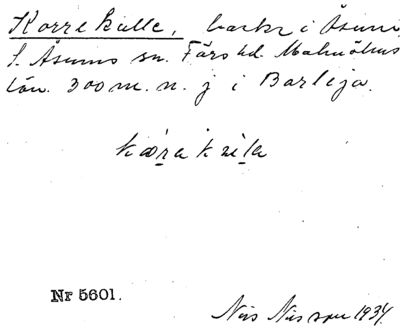 Korrekulle, backe i Åsum,
S. Åsums sn. Färs hd. Malmöhus
län. 300 m. n. j i Barlija.
Nr 5601.
Nils Nilsson 1934.